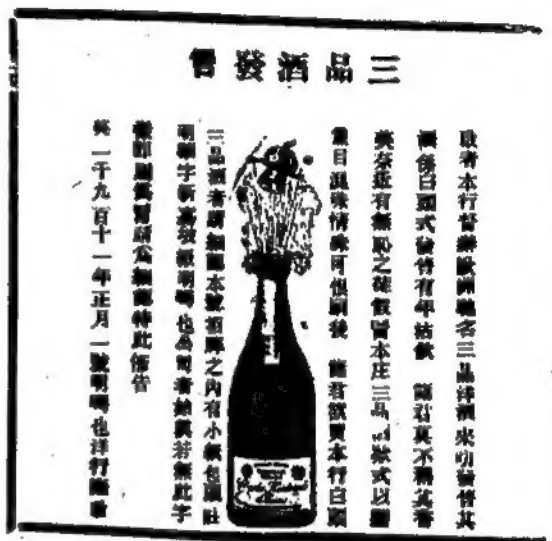 三品酒發售
啟者本行督辦歐洲馳名三品洋酒來叻發售其
酒係白頭式發售有年沽飲 諸君莫不稱其奇
美奈近有無恥之徒假冒本庄三品款式以圖
魚目混珠情殊可恨嗣後 諸君欲買本行白頭
三品酒者請細認本號酒樽之內有小紙包頭註
明華字新嘉坡抵明嗎也公司者始真若無此字
樣即屬假冒請為細認特此佈告
英一千九百十一年正月一號明嗎也洋行謹啟